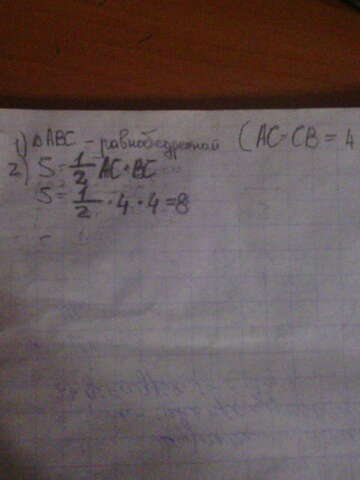 1) △ABC - равнобедренный (AC=CB=4
2) S=1/2 AC·BC
S=1/2·4·4=8